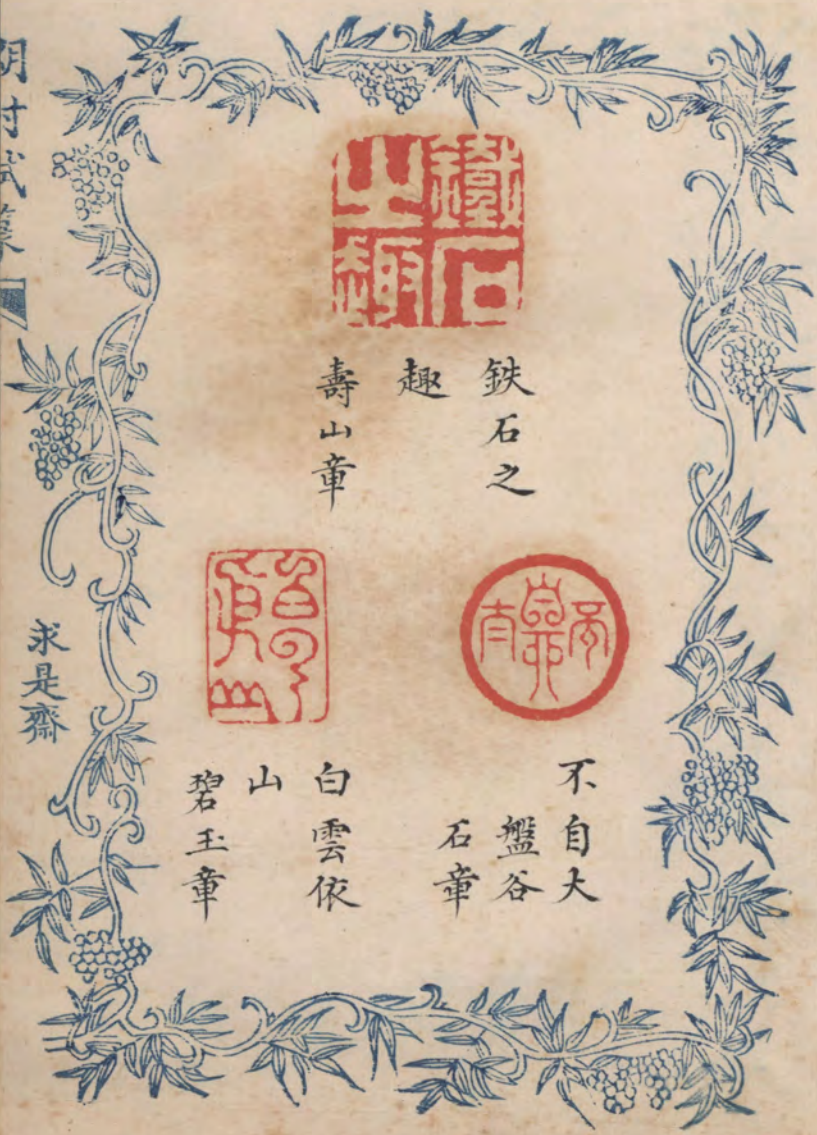 鐵石
之趣
鉄石之
趣
壽山章
不自大
盤谷
石章
白雲依
山
碧玉章
求是齋